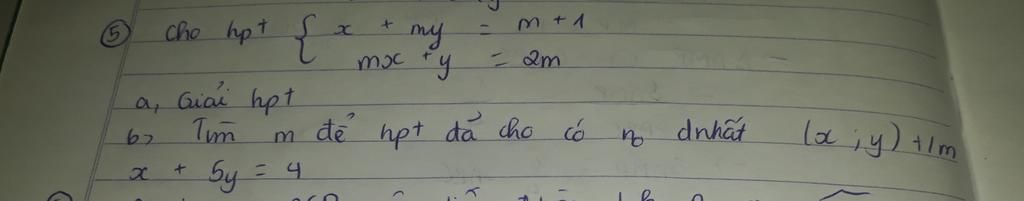 ⑤ Cho hpt { x + my = m + 1
mx + y = 2m
a, Giải hpt
b, Tìm m để hpt đã cho có no dnhất (x ; y) t/m
x + 5y = 4